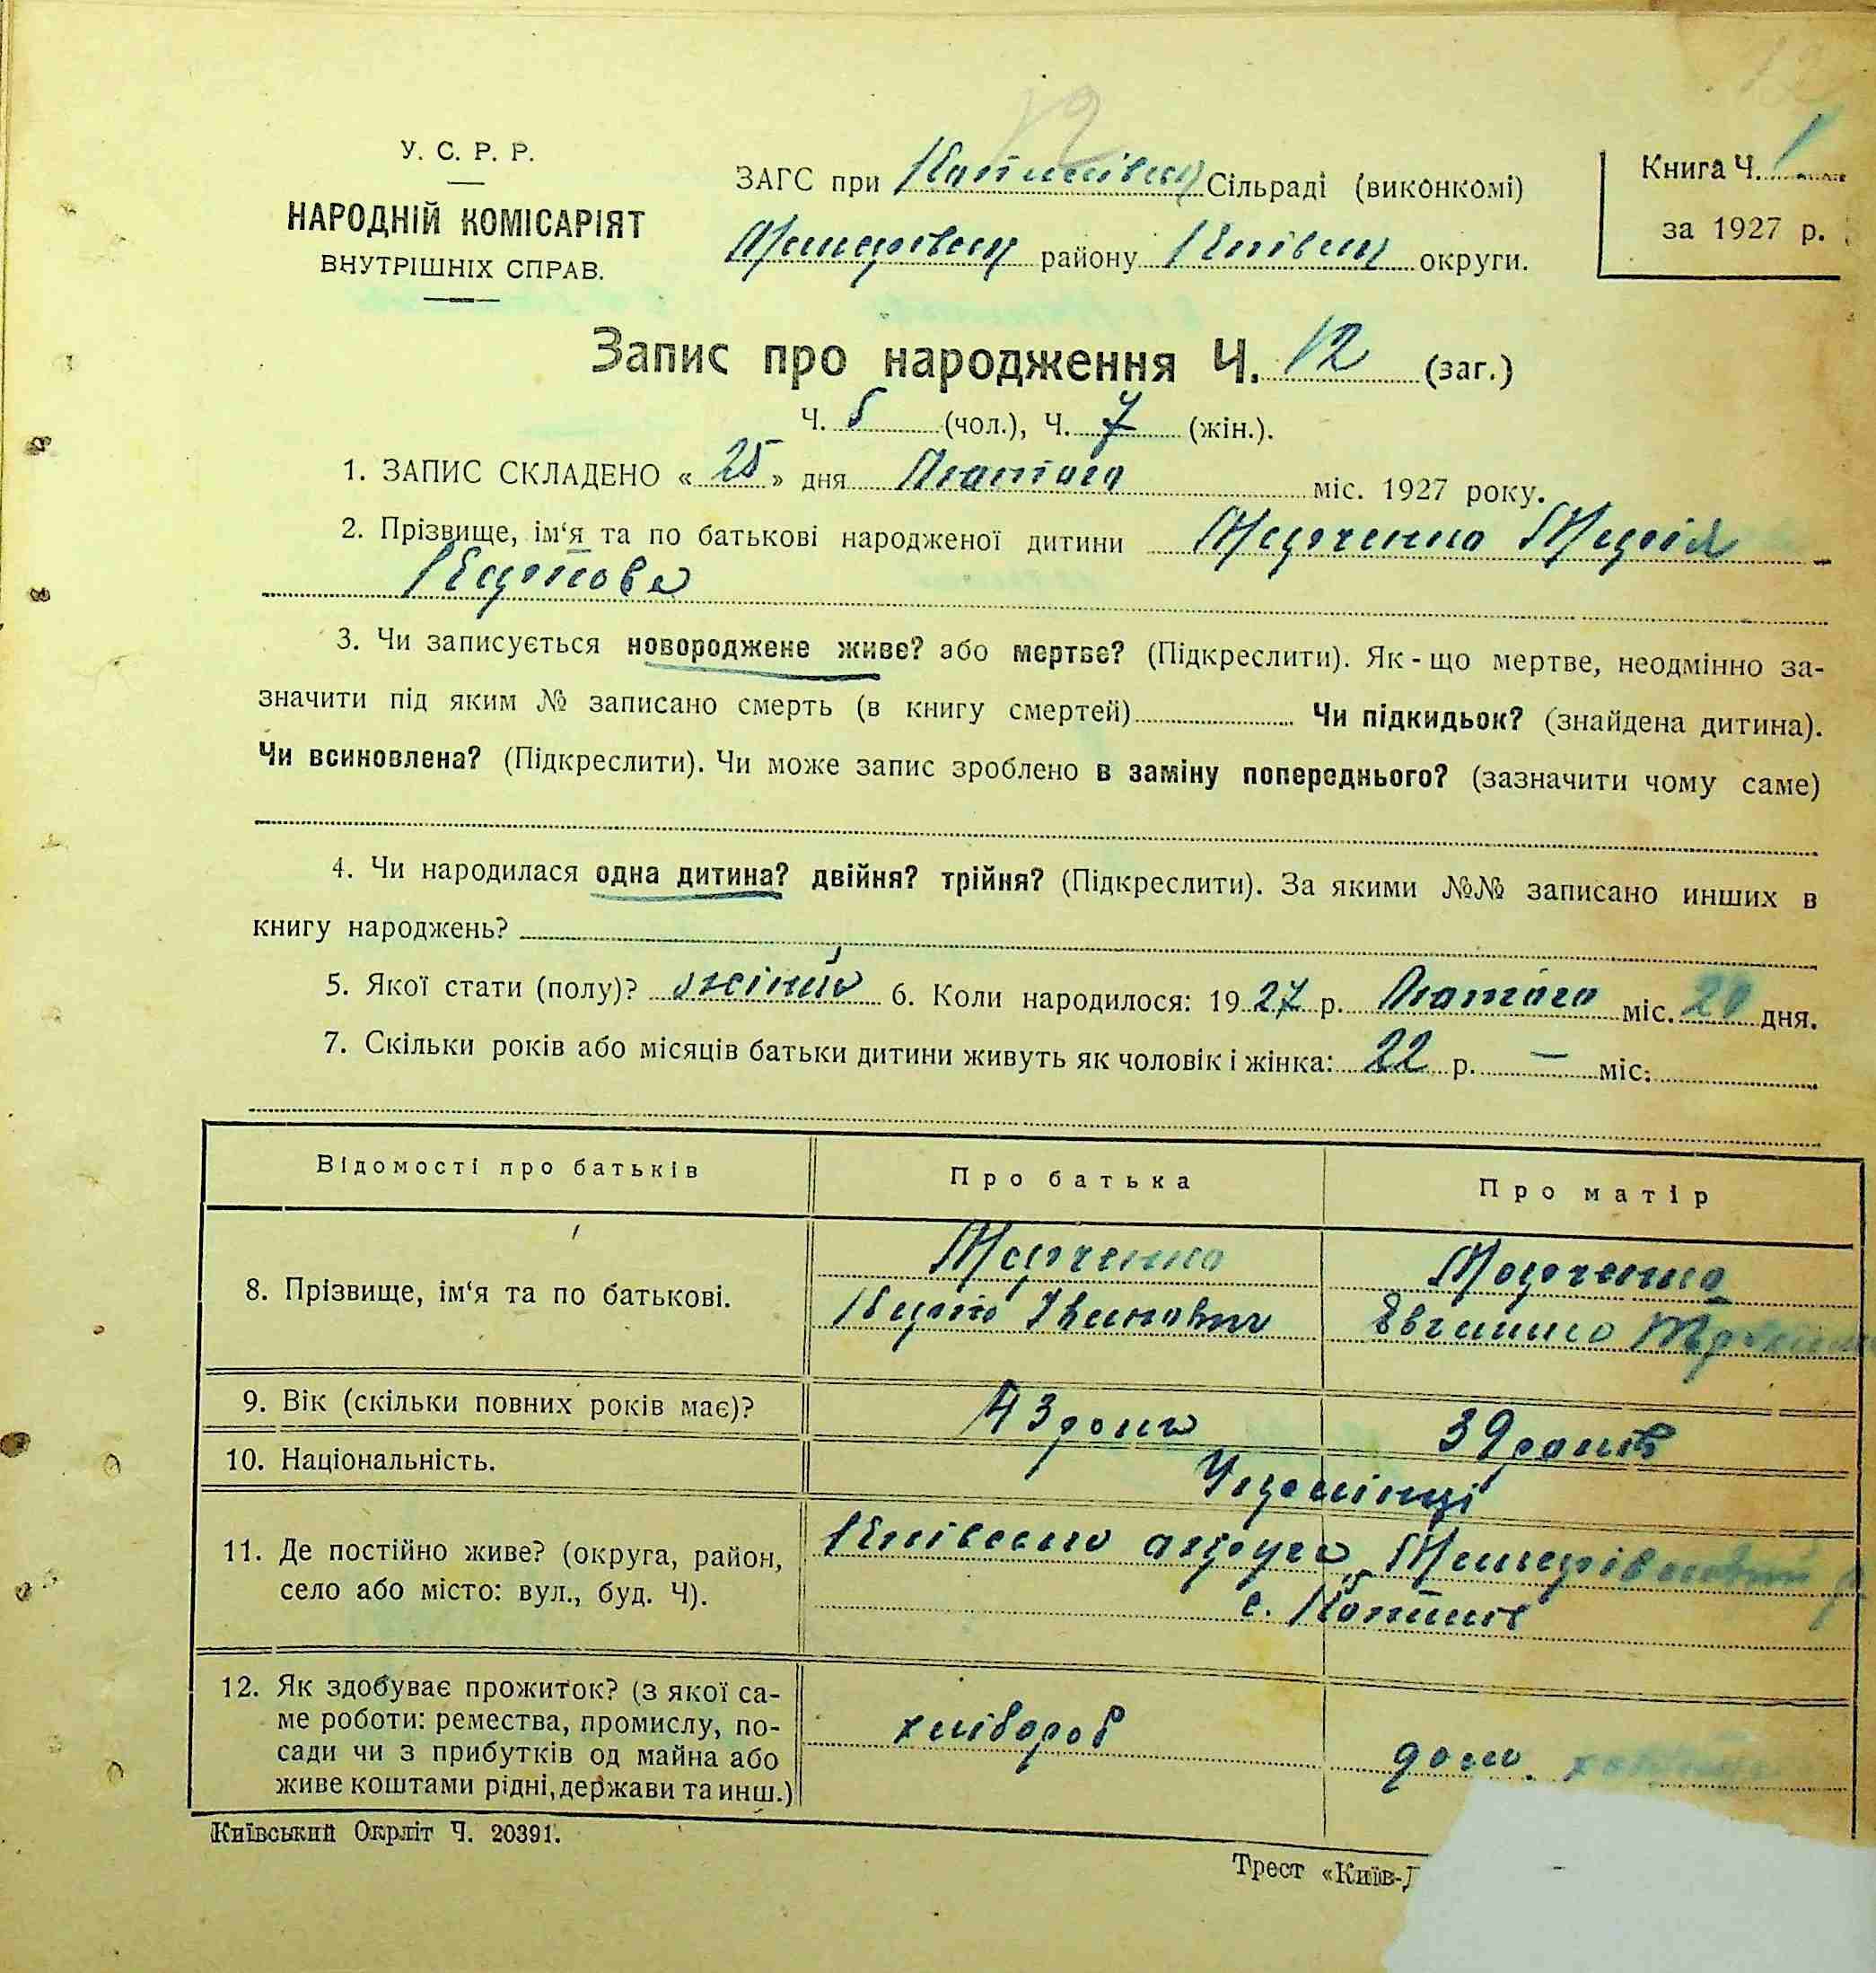 12
У. С. Р. Р.
НАРОДНІЙ КОМІСАРІЯТ
ВНУТРІШНІХ СПРАВ.
ЗАГС при Копилівськ Сільраді (виконкомі)
Макарівськ району Київськ округи.
Книга Ч. 1
за 1927 р.
Запис про народження Ч. 12 (заг.)
Ч. 5 (чол.), Ч. 7 (жін.).
1. ЗАПИС СКЛАДЕНО « 25 » дня Лютого міс. 1927 року.
2. Прізвище, ім‘я та по батькові народженої дитини Марченко Марія
Карпова
3. Чи записується новороджене живе? або мертве? (Підкреслити). Як-що мертве, неодмінно за-
значити під яким № записано смерть (в книгу смертей) Чи підкидьок? (знайдена дитина).
Чи всиновлена? (Підкреслити). Чи може запис зроблено в заміну попереднього? (зазначити чому саме)
4. Чи народилася одна дитина? двійня? трійня? (Підкреслити). За якими №№ записано инших в
книгу народжень?
5. Якої стати (полу)? жіной 6. Коли народилося: 1927 р. Лютого міс. 20 дня.
7. Скільки років або місяців батьки дитини живуть як чоловік і жінка: 22 р. — міс.
Відомості про батьків
Про батька
Про матір
8. Прізвище, ім‘я та по батькові.
Марченко
Карпо Іванович
Марченко
Євгинія
9. Вік (скільки повних років має)?
43 роки
39 років
10. Національність.
Українці
11. Де постійно живе? (округа, район,
село або місто: вул., буд. Ч).
Київська округа, Макарівський р.
с. Копилів
12. Як здобуває прожиток? (з якої са-
ме роботи: ремества, промислу, по-
сади чи з прибутків од майна або
живе коштами рідні, держави та инш.)
хлібороб
дом.
Київський Окрліт Ч. 20391.
Трест «Київ-Д